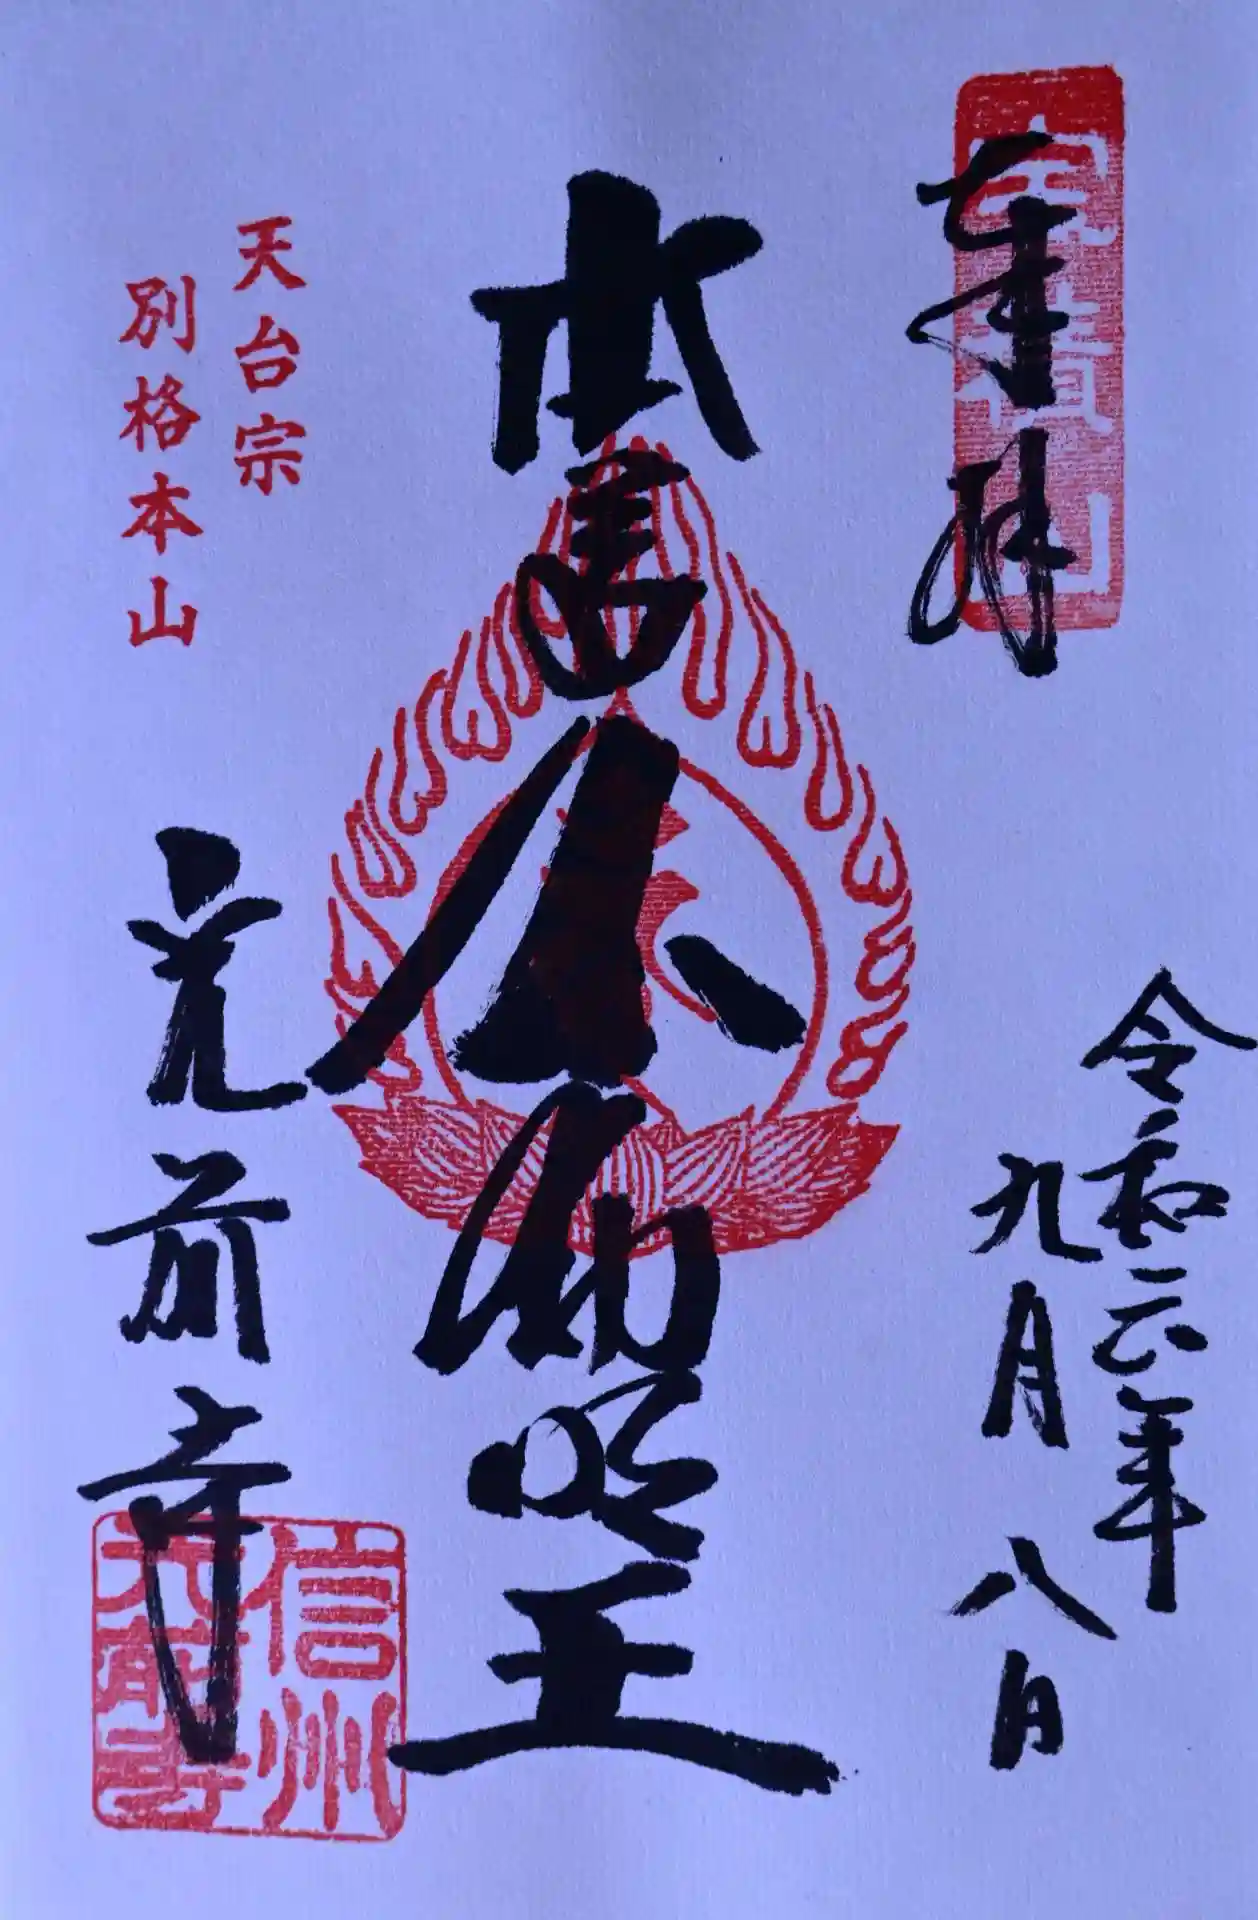 奉拝
宝積山
令和六年
九月八日
本尊不動明王
天台宗
別格本山
光前寺
信州
光前寺